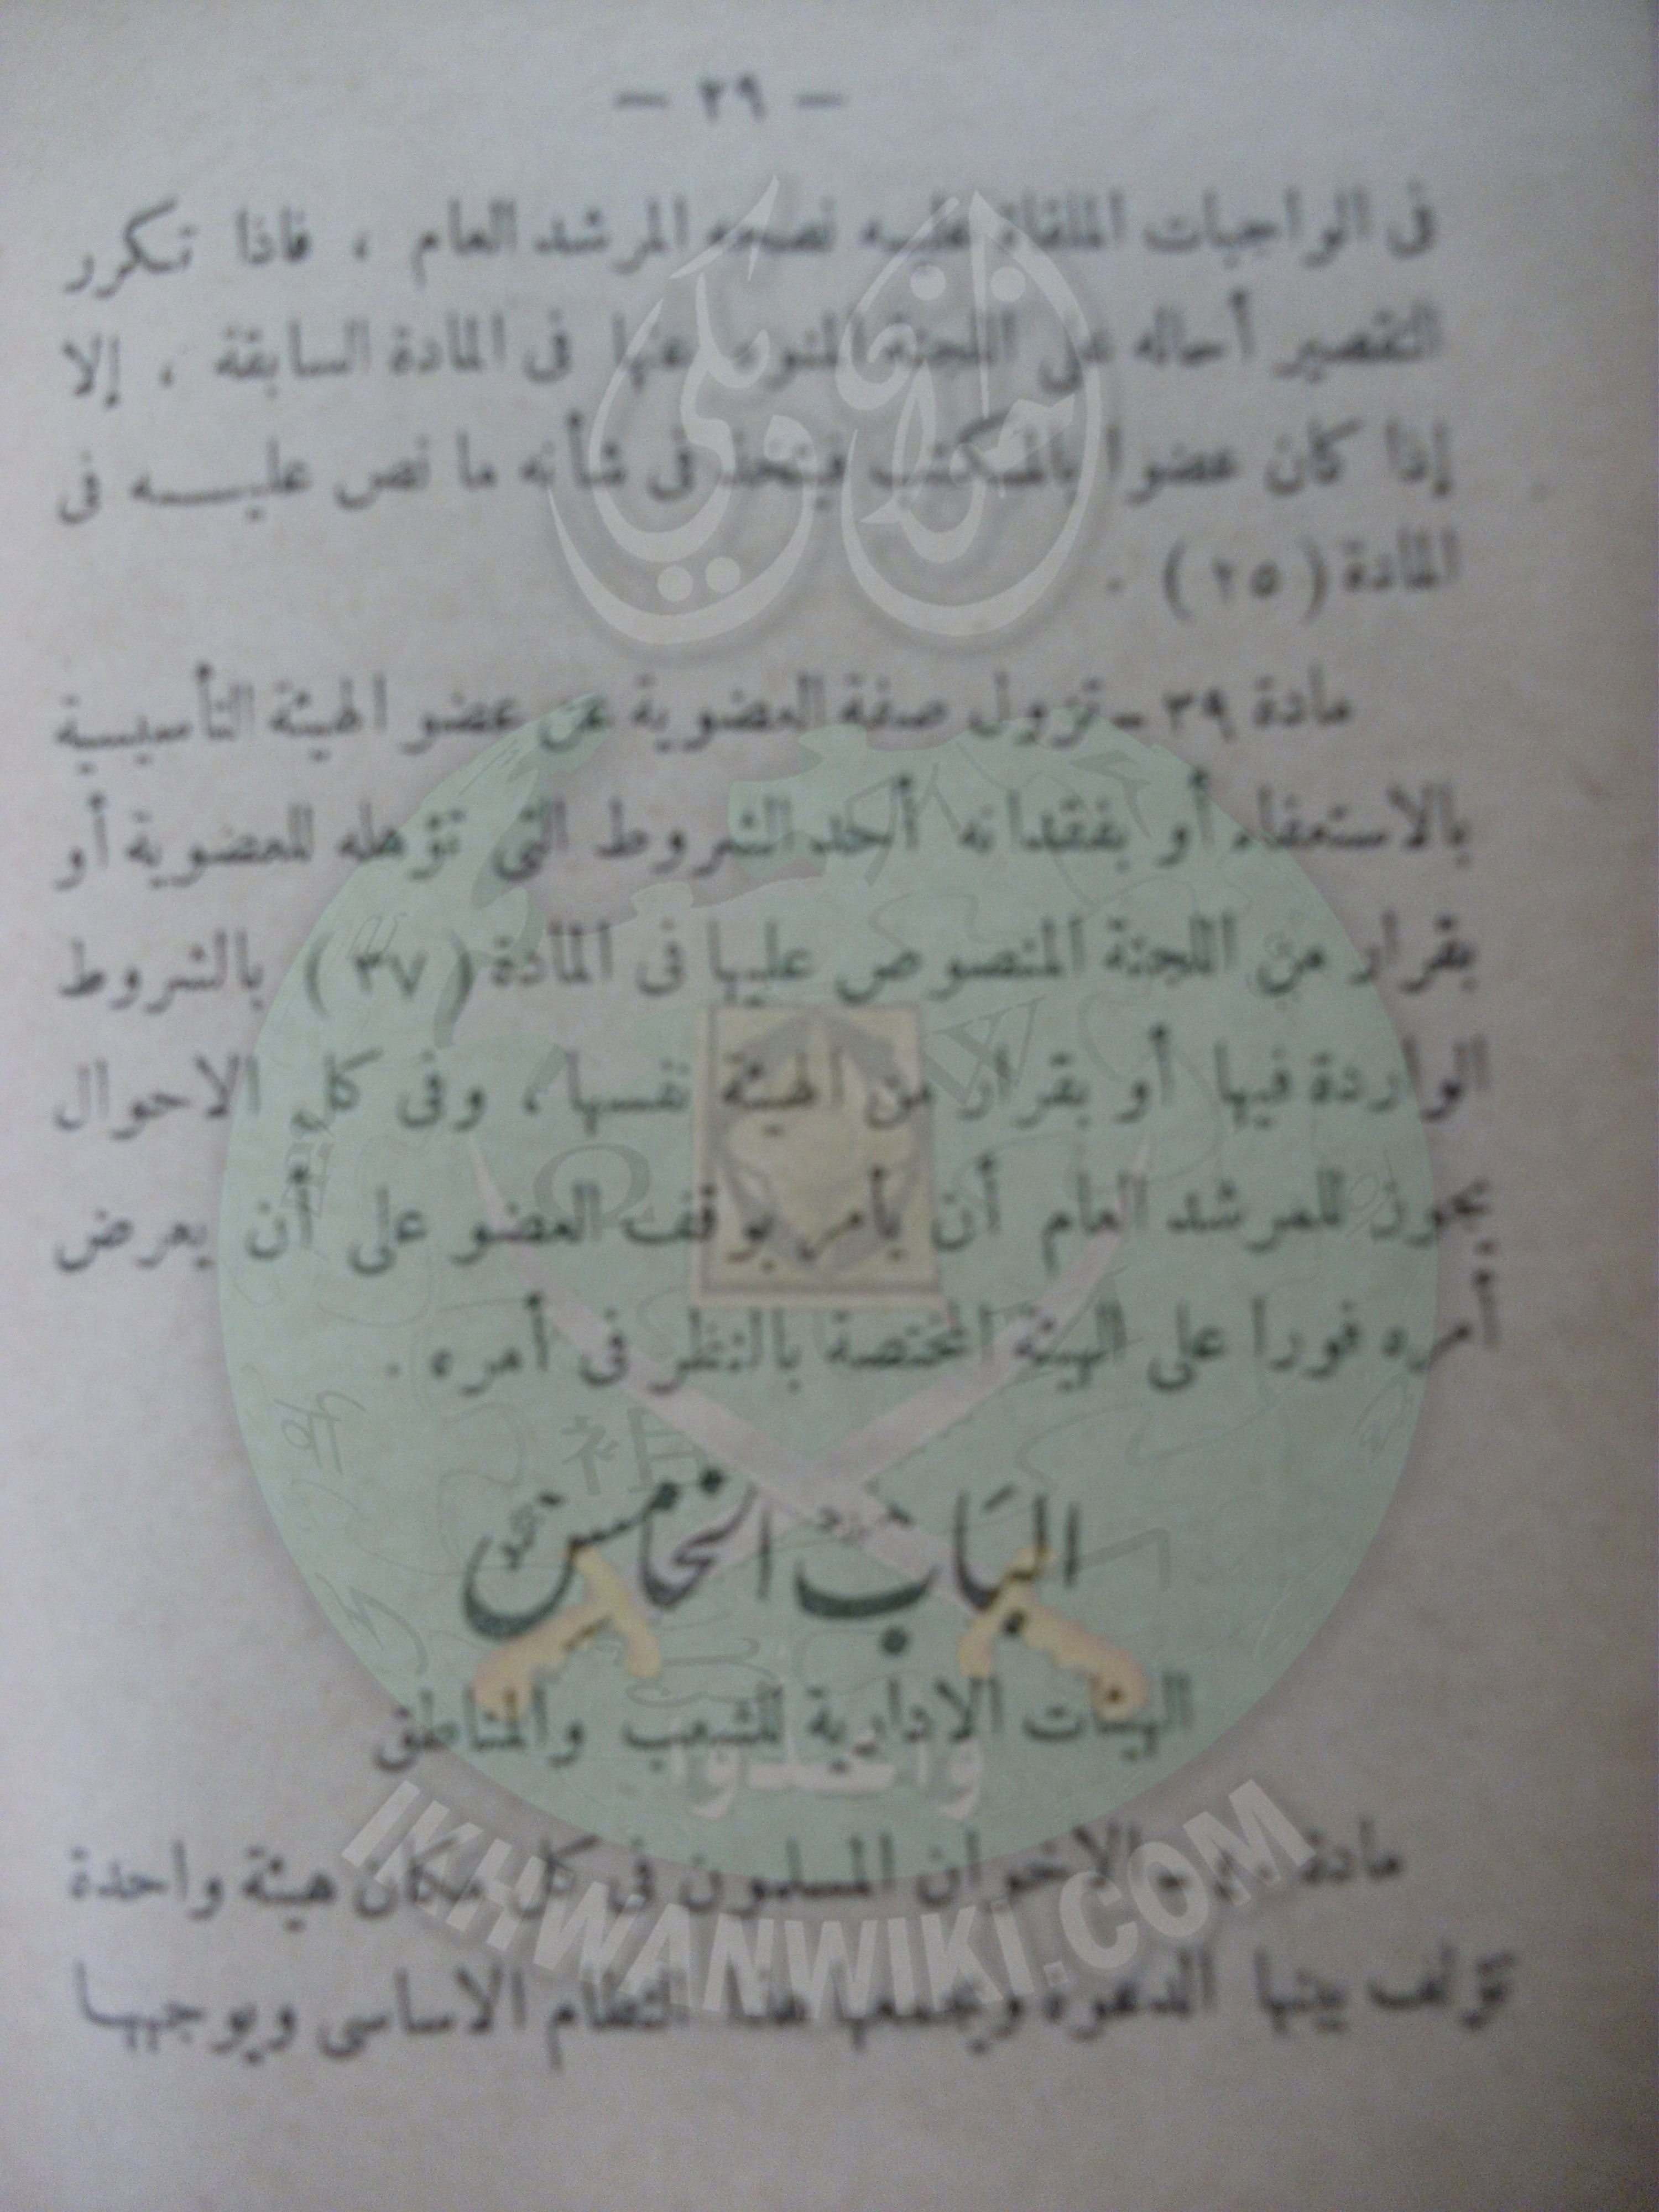 — ٢٩ —
فى الواجبات الملقاة عليه نصحه المرشد العام ، فاذا تكرر
التقصير أحاله على اللجنة المنوه عنها فى المادة السابقة ، إلا
إذا كان عضوا بالمكتب فيتخذ فى شأنه ما نص عليه فى
المادة ( ٢٥ ) .
مادة ٣٩ – تزول صفة العضوية عن عضو الهيئة التأسيسية
بالاستعفاء أو بفقدانه أحد الشروط التى تؤهله للعضوية أو
بقرار من اللجنة المنصوص عليها فى المادة ( ٣٧ ) بالشروط
الواردة فيها أو بقرار من الهيئة نفسها ، وفى كل الاحوال
يجوز للمرشد العام أن يأمر بوقف العضو على أن يعرض
أمره فورا على الهيئة المختصة بالنظر فى أمره .
الباب الخامس
الهيئات الادارية للشعب والمناطق
مادة – الاخوان المسلمون فى كل مكان هيئة واحدة
تؤلف بينها الدعوة ويجمعها هذا النظام الاساسى ويوجهها
إخوان ويكي
وأعدوا
IKHWANWIKI.COM